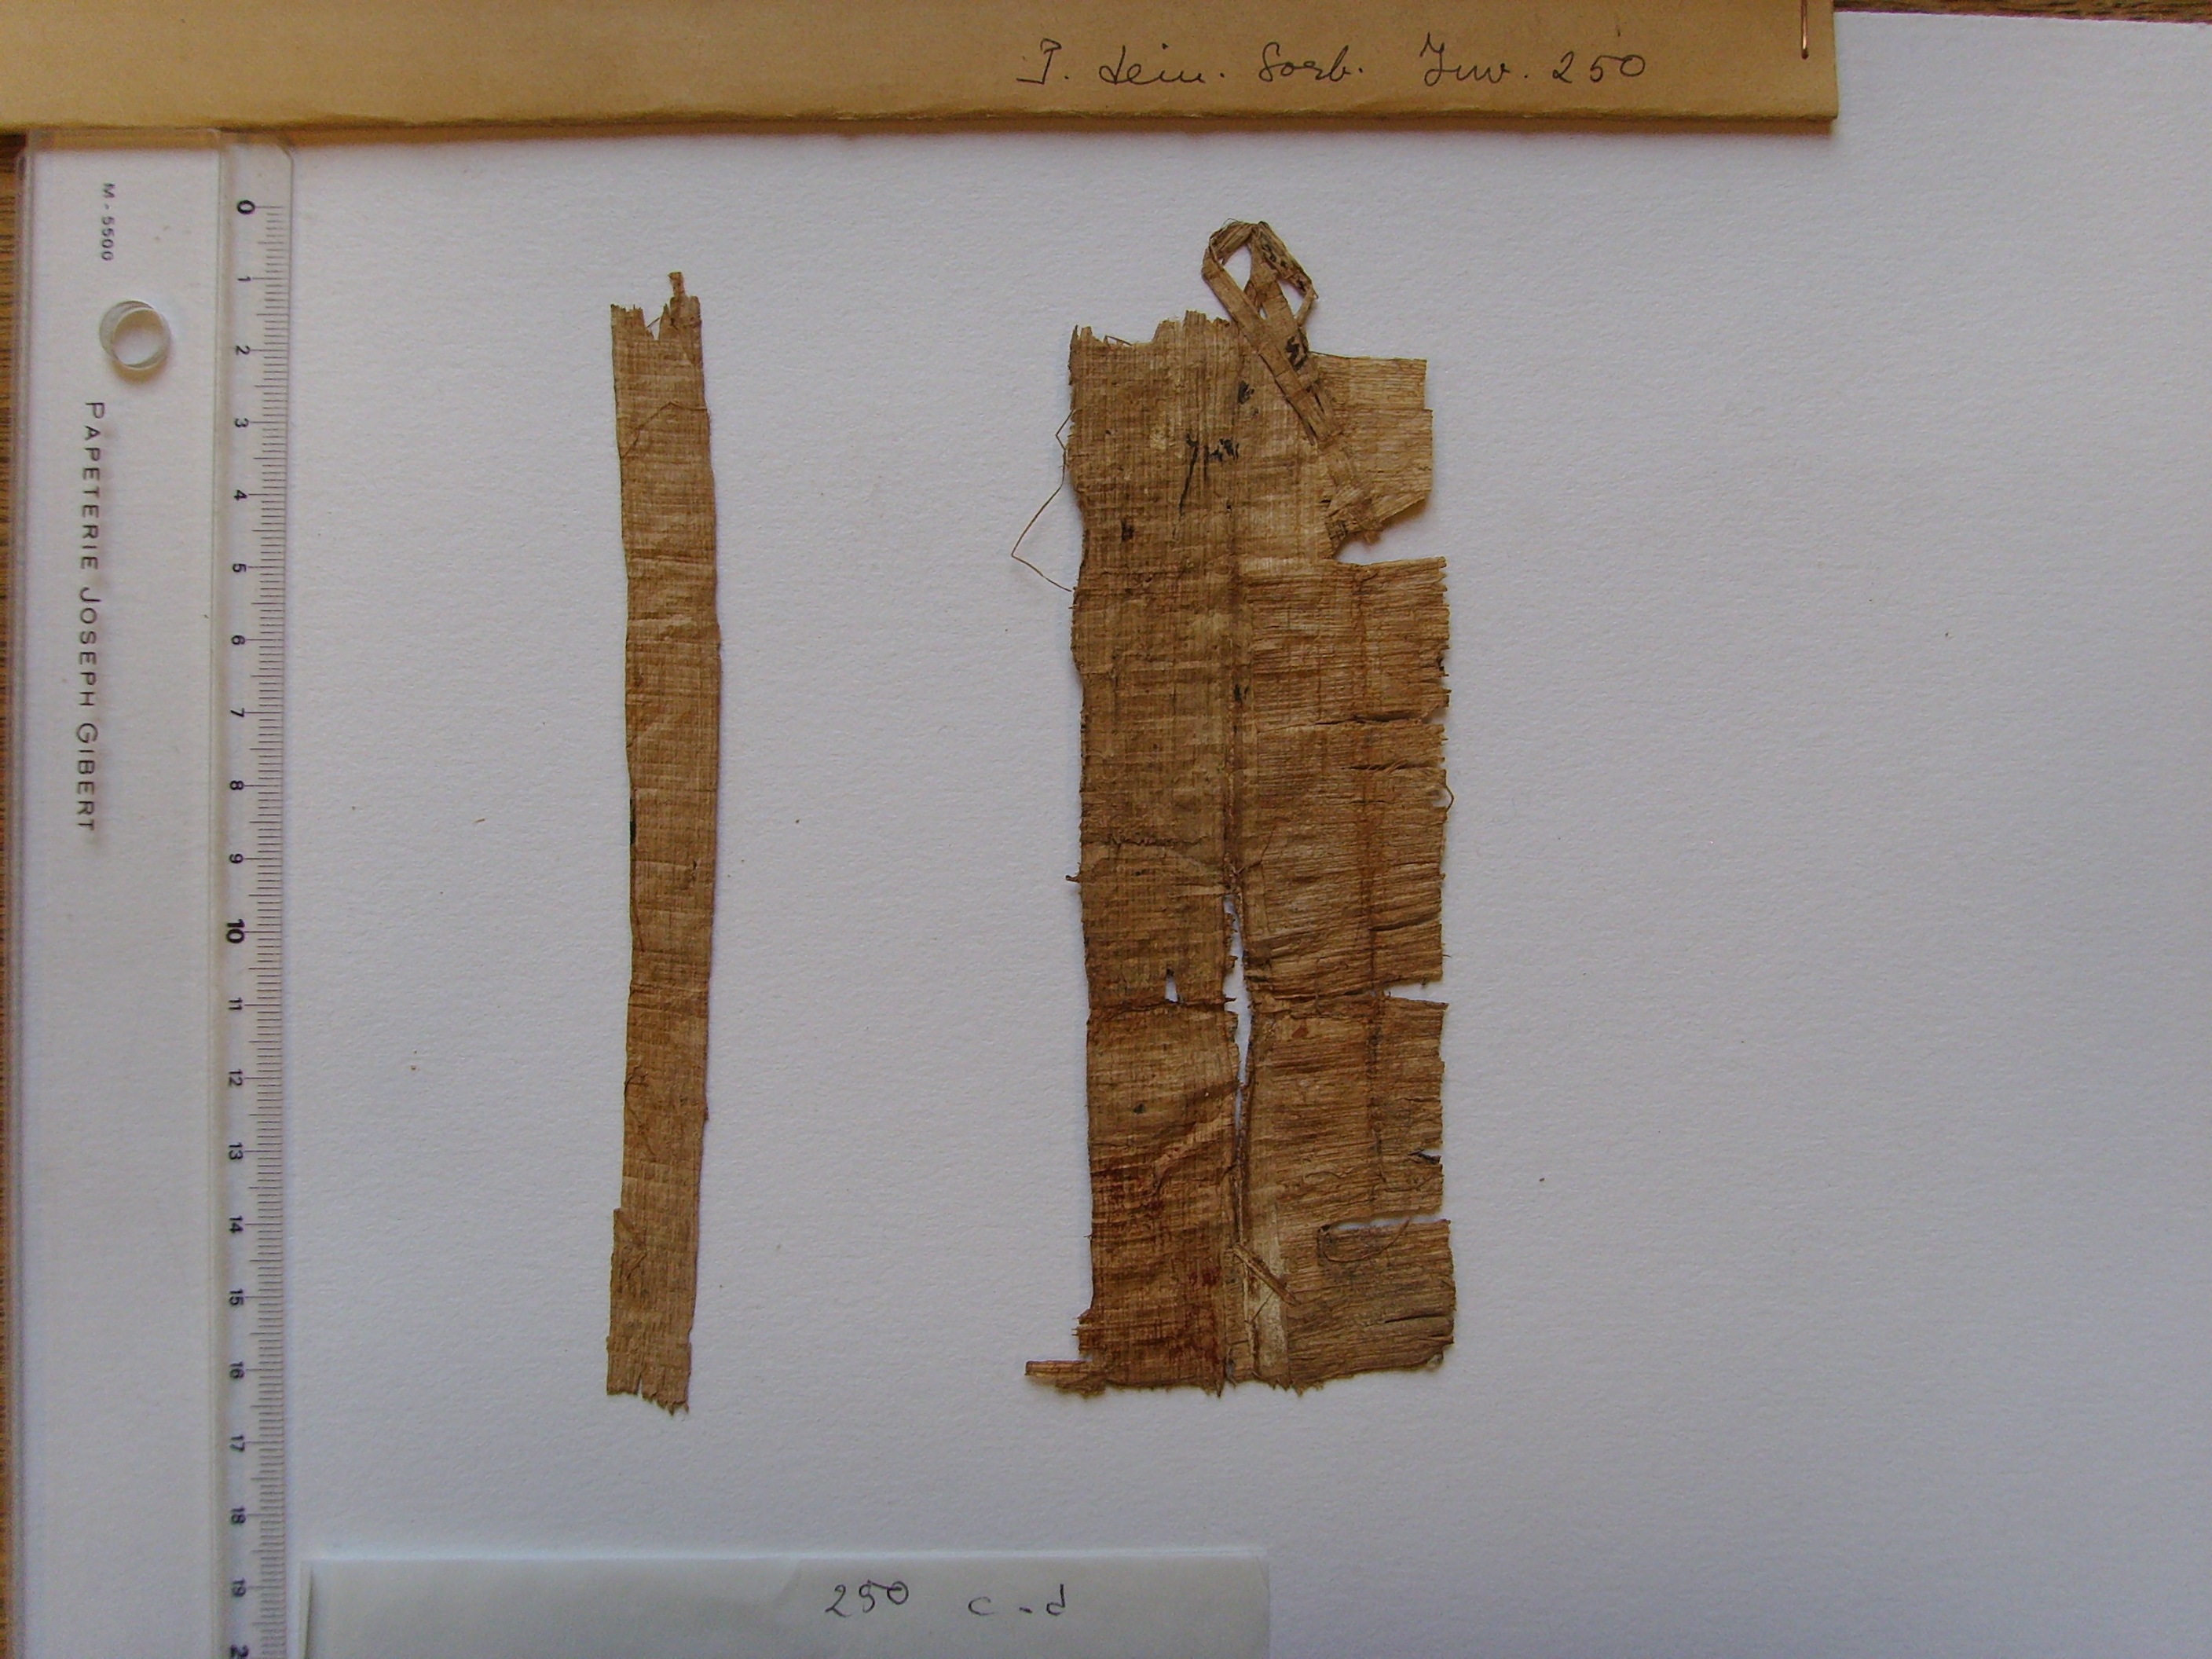 P. dem. Sorb. Inv. 250
M-5500
PAPETERIE JOSEPH GIBERT
0
1
2
3
4
5
6
7
8
9
10
11
12
13
14
15
16
17
18
19
250 c-d